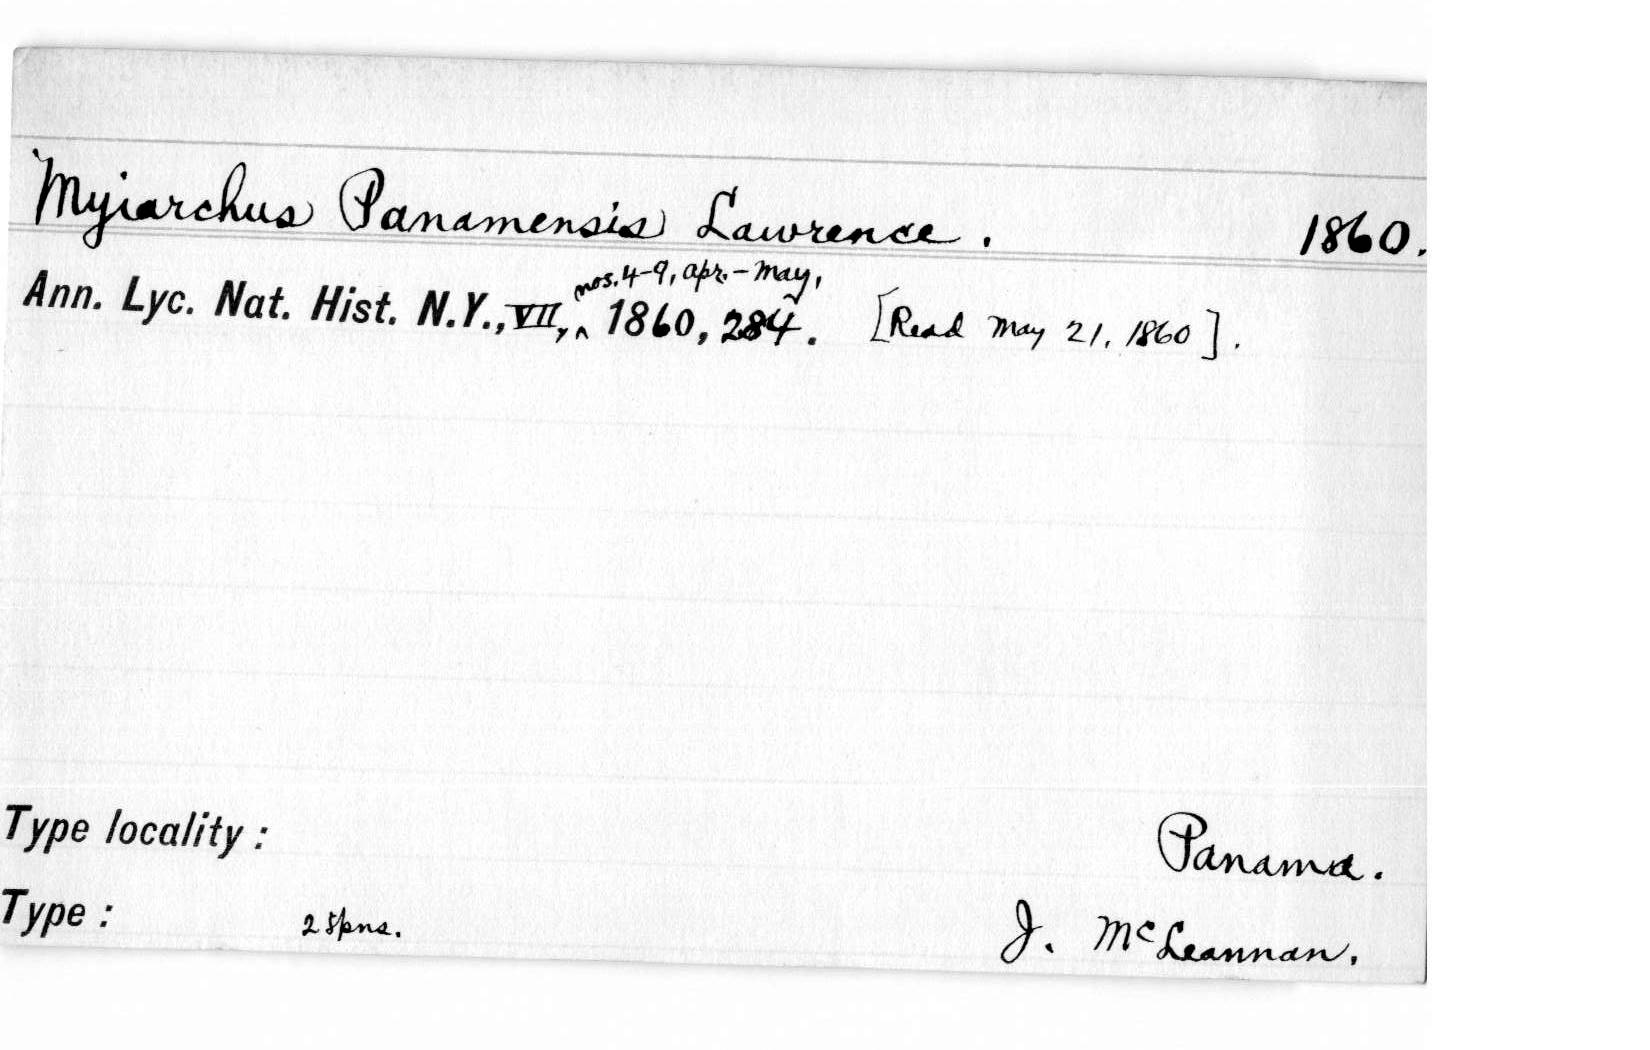 Myiarchus Panamensis Lawrence. 1860.
Ann. Lyc. Nat. Hist. N.Y., VII, nos. 4-9, Apr. - May, 1860, 284. [Read May 21, 1860].
Type locality: Panama.
Type: 2 spns. J. McLeannan.